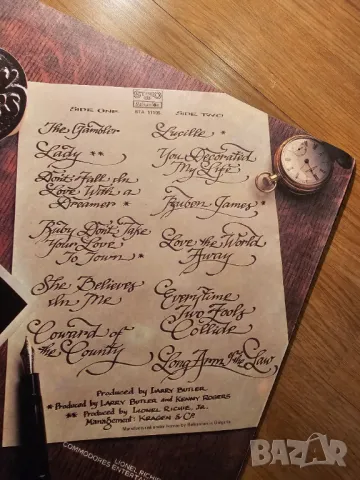 SIDE ONE
BTA 11135
SIDE TWO
The Gambler
Lady **
Don't Fall In
Love With a
Dreamer *
Ruby Don't Take
Your Love
To Town *
She Believes
In Me
Coward of
the County
Lucille *
You Decorated
My Life
Ruben James *
Love the World
Away
Everytime
Two Fools
Collide
Long Arm of the Law
Produced by LARRY BUTLER
* Produced by LARRY BUTLER and KENNY ROGERS
** Produced by LIONEL RICHIE, JR.
Management: KRAGEN & Co.
LIONEL RICHIE
COMMODORES ENTERT
bazar
.bg